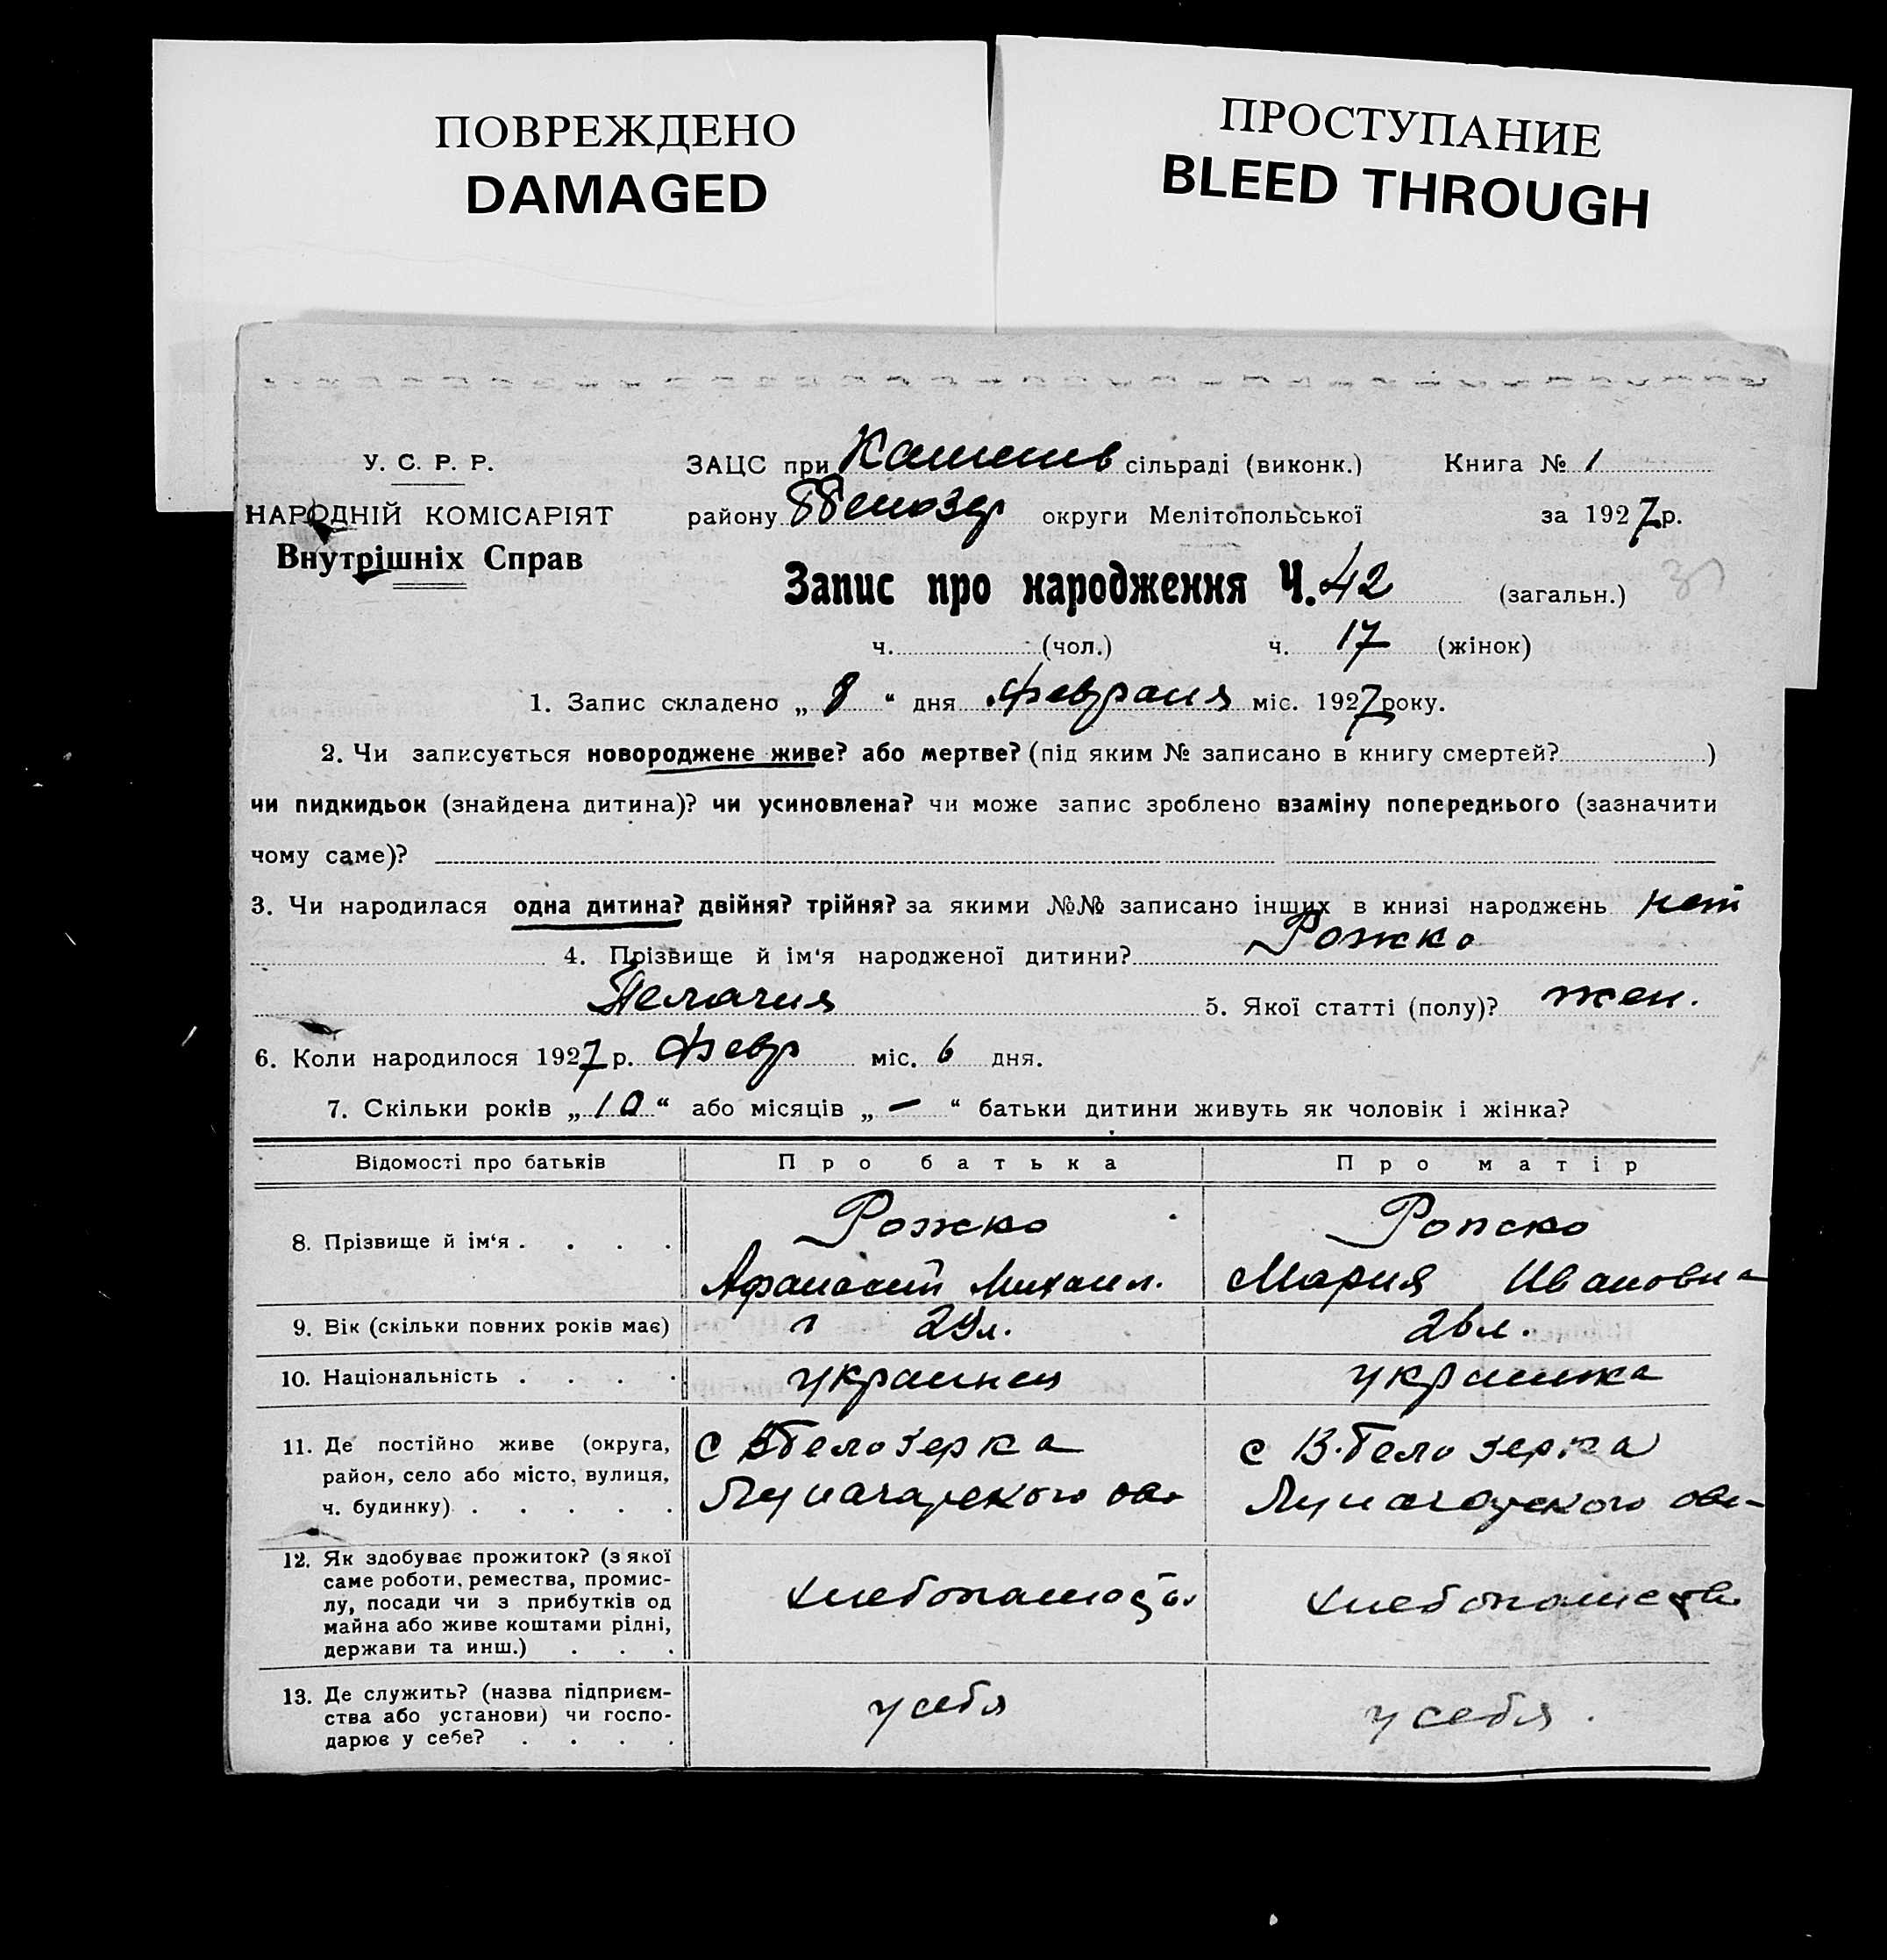 ПОВРЕЖДЕНО
DAMAGED
ПРОСТУПАНИЕ
BLEED THROUGH
У. С. Р. Р.
НАРОДНІЙ КОМІСАРІЯТ
Внутрішніх Справ
ЗАЦС при сільраді (виконк.) Книга № 1
району ВБелозер округи Мелітопольської за 1927 р.
Запис про народження Ч. 42 (загальн.)
ч. (чол.) ч. 17 (жінок)
1. Запис складено „ 8 “ дня февраля міс. 1927 року.
2. Чи записується новороджене живе? або мертве? (під яким № записано в книгу смертей? )
чи пидкидьок (знайдена дитина)? чи усиновлена? чи може запис зроблено взаміну попереднього (зазначити
чому саме)?
3. Чи народилася одна дитина? двійня? трійня? за якими №№ записано інших в книзі народжень нет
4. Прізвище й ім‘я народженої дитини? Рожко
Пелагия 5. Якої статті (полу)? жен.
6. Коли народилося 1927 р. Февр міс. 6 дня.
7. Скільки років „ 10 “ або місяців „ — “ батьки дитини живуть як чоловік і жінка?
Відомості про батьків Про батька Про матір
8. Прізвище й ім‘я . . . . Рожко Рожко
Афанасий Михаил. Мария Ивановна
9. Вік (скільки повних років має) 29 л. 26 л.
10. Національність . . . . украинец украинка
11. Де постійно живе (округа, район, село або місто, вулиця, ч. будинку) . . . . .
с ВБелозерка с В.Белозерка
Луначарского Луначарского
12. Як здобуває прожиток? (з якої
саме роботи, ремества, промис-
лу, посади чи з прибутків од
майна або живе коштами рідні,
держави та инш.) . . .
хлебопаш
хлебопашеств
13. Де служить? (назва підприєм-
ства або установи) чи госпо-
дарює у себе? . . . .
у себя у себя.